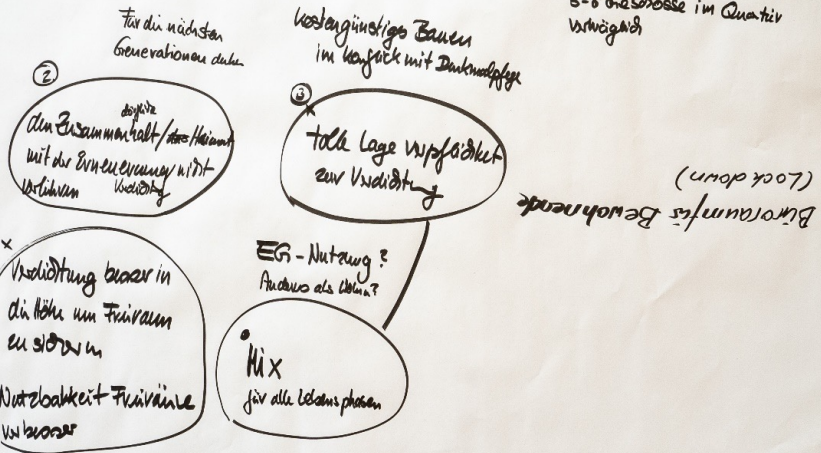 Für die nächsten
Generationen denken
kostengünstiges Bauen
im Konflikt mit Denkmalpflege
5-6 Geschosse im Quartier
verträglich
②
den Zusammenhalt / Heimat
mit der Erneuerung nicht
verlieren Verdichtung
③
tolle Lage verpflichtet
zur Verdichtung
Büroraum für Bewohnende
(Lockdown)
x
Verdichtung besser in
die Höhe um Freiraum
zu sichern
Nutzbarkeit Freiräume
verbessern
EG-Nutzung?
Anders als Wohnen?
Mix
für alle Lebensphasen